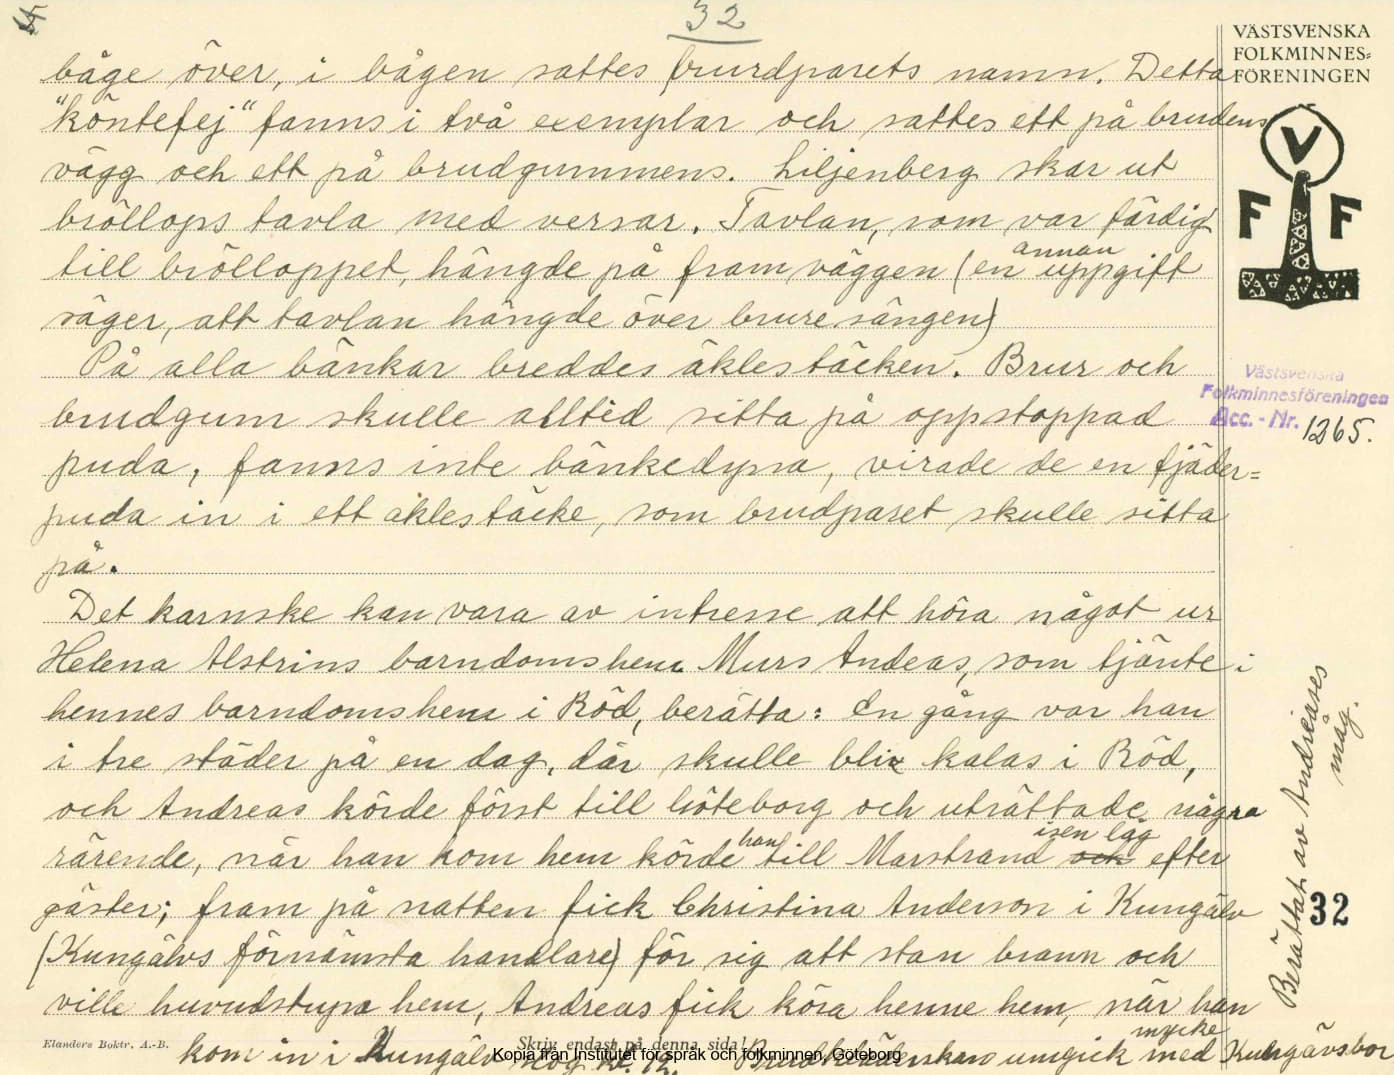 32
båge över, i bågen sattes brurdparets namn. Detta
"köntefej" fanns i två exemplar och sattes ett på brudens
vägg och ett på brudgummens. Liljenberg skar ut
bröllops tavla med versar. Tavlan, som var färdig
till brölloppet, hängde på fram väggen (en annan uppgift
säger, att tavlan hängde över brure sängen)
På alla bänkar breddes åklestäcken. Brur och
brudgum skulle alltid sitta på oppstoppad
puda, fanns inte bänkedyna, virade de en fjäder=
puda in i ett åklestäcke, som brudparet skulle sitta
på.
Det karnske kan vara av intresse att höra något ur
Helena Alstrins barndomshem Murs Andeas, som tjänte i
hennes barndomshem i Röd, berätta: En gång var han
i tre städer på en dag, där skulle bli kalas i Röd,
och Andreas körde först till Göteborg och uträttade några
rärende, när han kom hem körde han till Marstrand isen låg efter
gäster; fram på natten fick Christina Anderson i Kungälv
(Kungälvs förnämsta handlare) för sig att stan brann och
ville huvudstupa hem, Andreas fick köra henne hem, när han
kom in i Kungälv kl. 12. umgick mycke med Kungävsbor
VÄSTSVENSKA
FOLKMINNES=
FÖRENINGEN
V
F F
Västsvenska
Folkminnesföreningen
Acc.-Nr. 1265.
Berättat av Andreases
måg.
32
Elanders Boktr. A.-B.
Skriv endast på denna sida!
Kopia från Institutet för språk och folkminnen, Göteborg